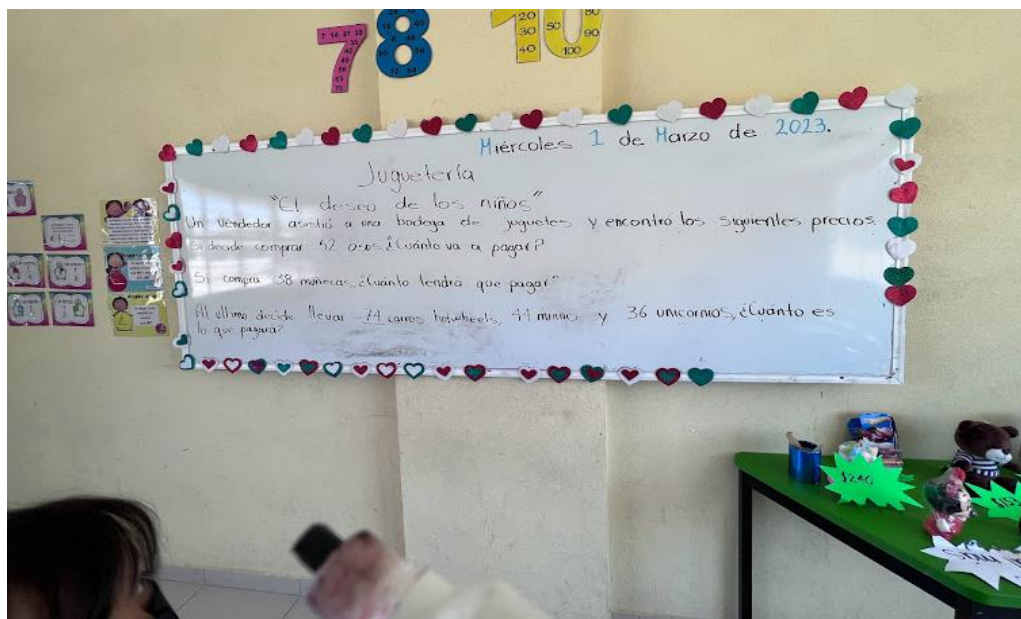 7 14 21 28
35
42
49
56
63
70
20
30
40
50
80
90
100
Miércoles 1 de Marzo de 2023.
Juguetería
"El deseo de los niños"
Un vendedor asistió a una bodega de juguetes y encontró los siguientes precios.
Si decide comprar 52 osos ¿Cuánto va a pagar?
Si compra 38 muñecas, ¿Cuánto tendrá que pagar?
Al ultimo decide llevar 74 carros hotwheels, 44 minnies y 36 unicornios, ¿Cuánto es
lo que pagará?
$240
$153